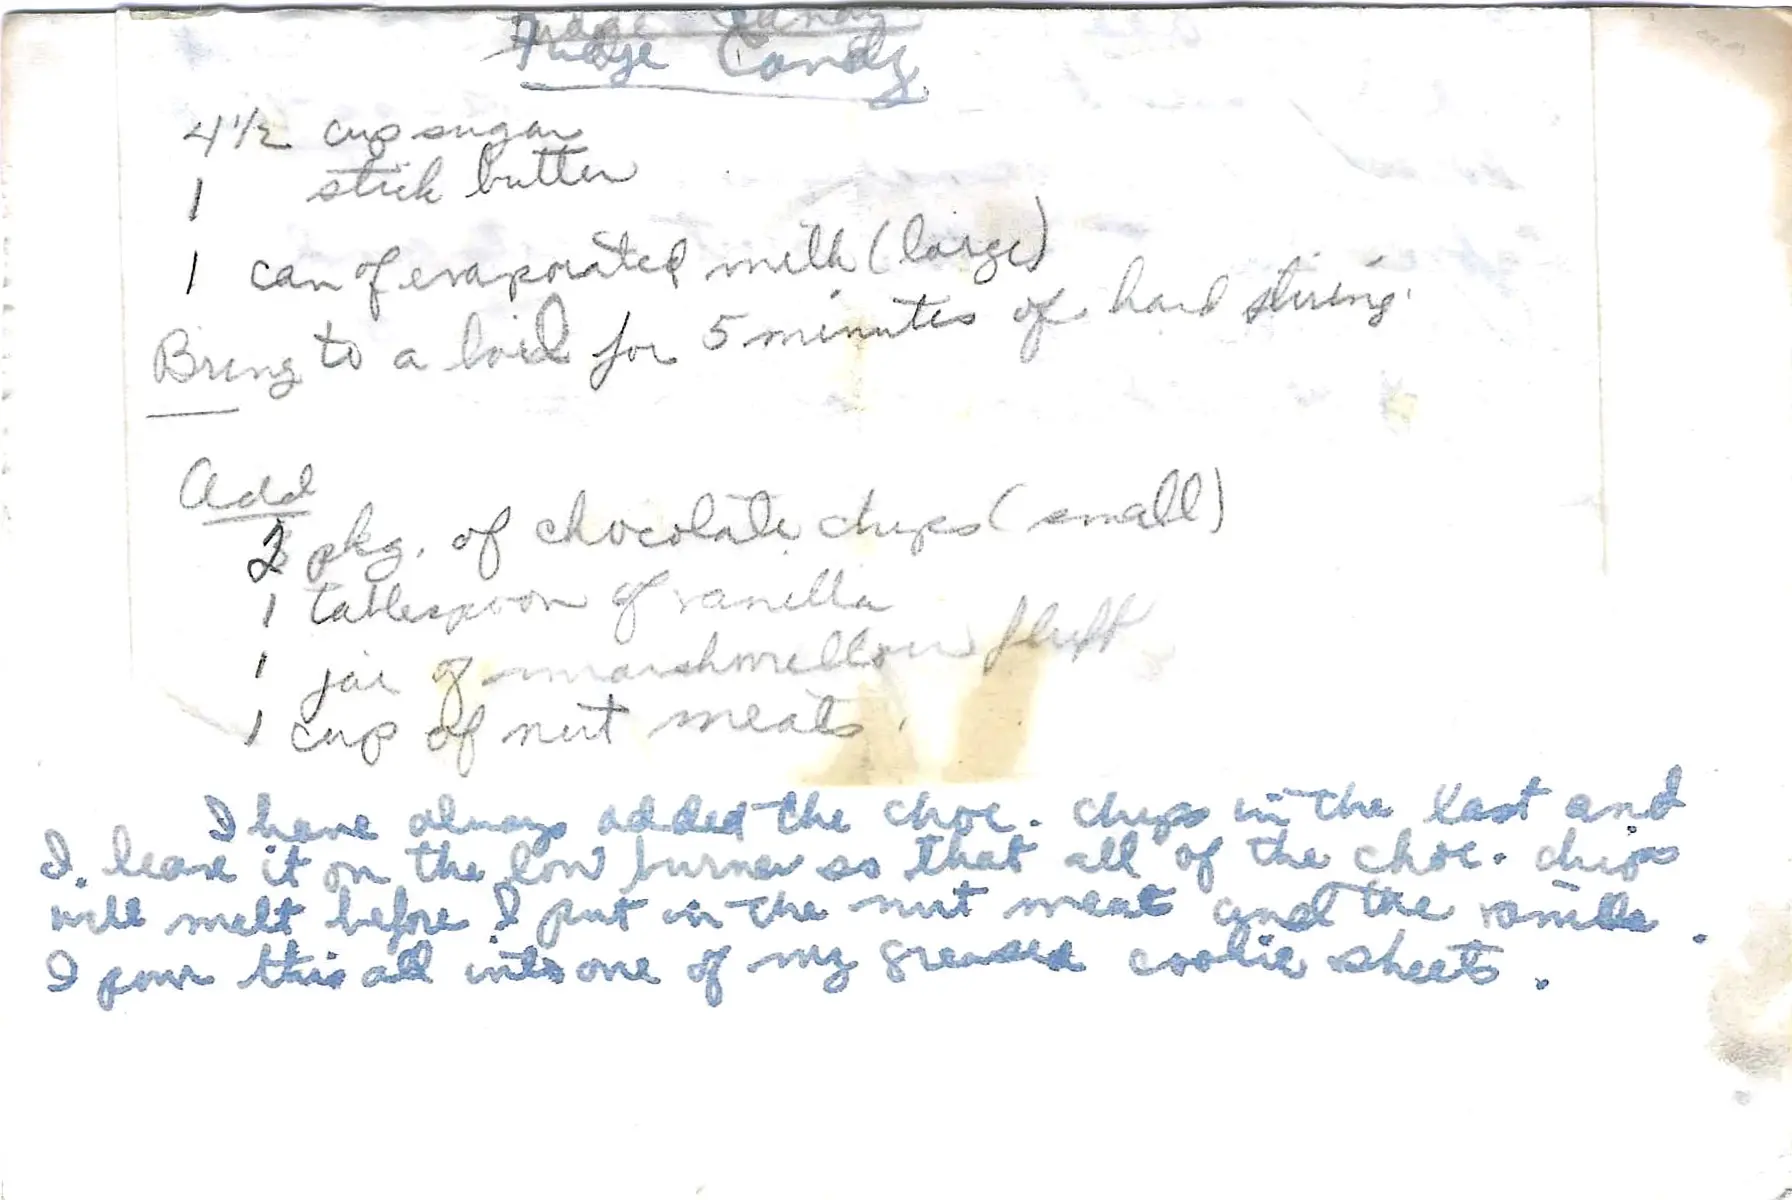 Fudge Candy
Fudge Candy
4 1/2 cup sugar
1 stick butter
1 can of evaporated milk (large)
Bring to a boil for 5 minutes of hard stiring.
Add
2 pkg. of chocolate chips (small)
1 tablespoon of vanilla
1 jar of marshmellow fluff
1 cup of nut meats.
I have always added the choc. chips in the last and
I leave it on the low burner so that all of the choc. chips
will melt before I put in the nut meats and the vanilla.
I pour this all into one of my greased cookie sheets.